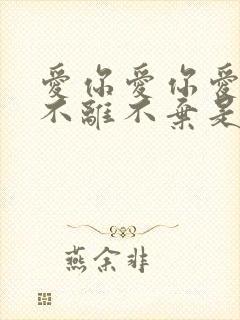 愛你愛你愛
不離不棄是
燕余非